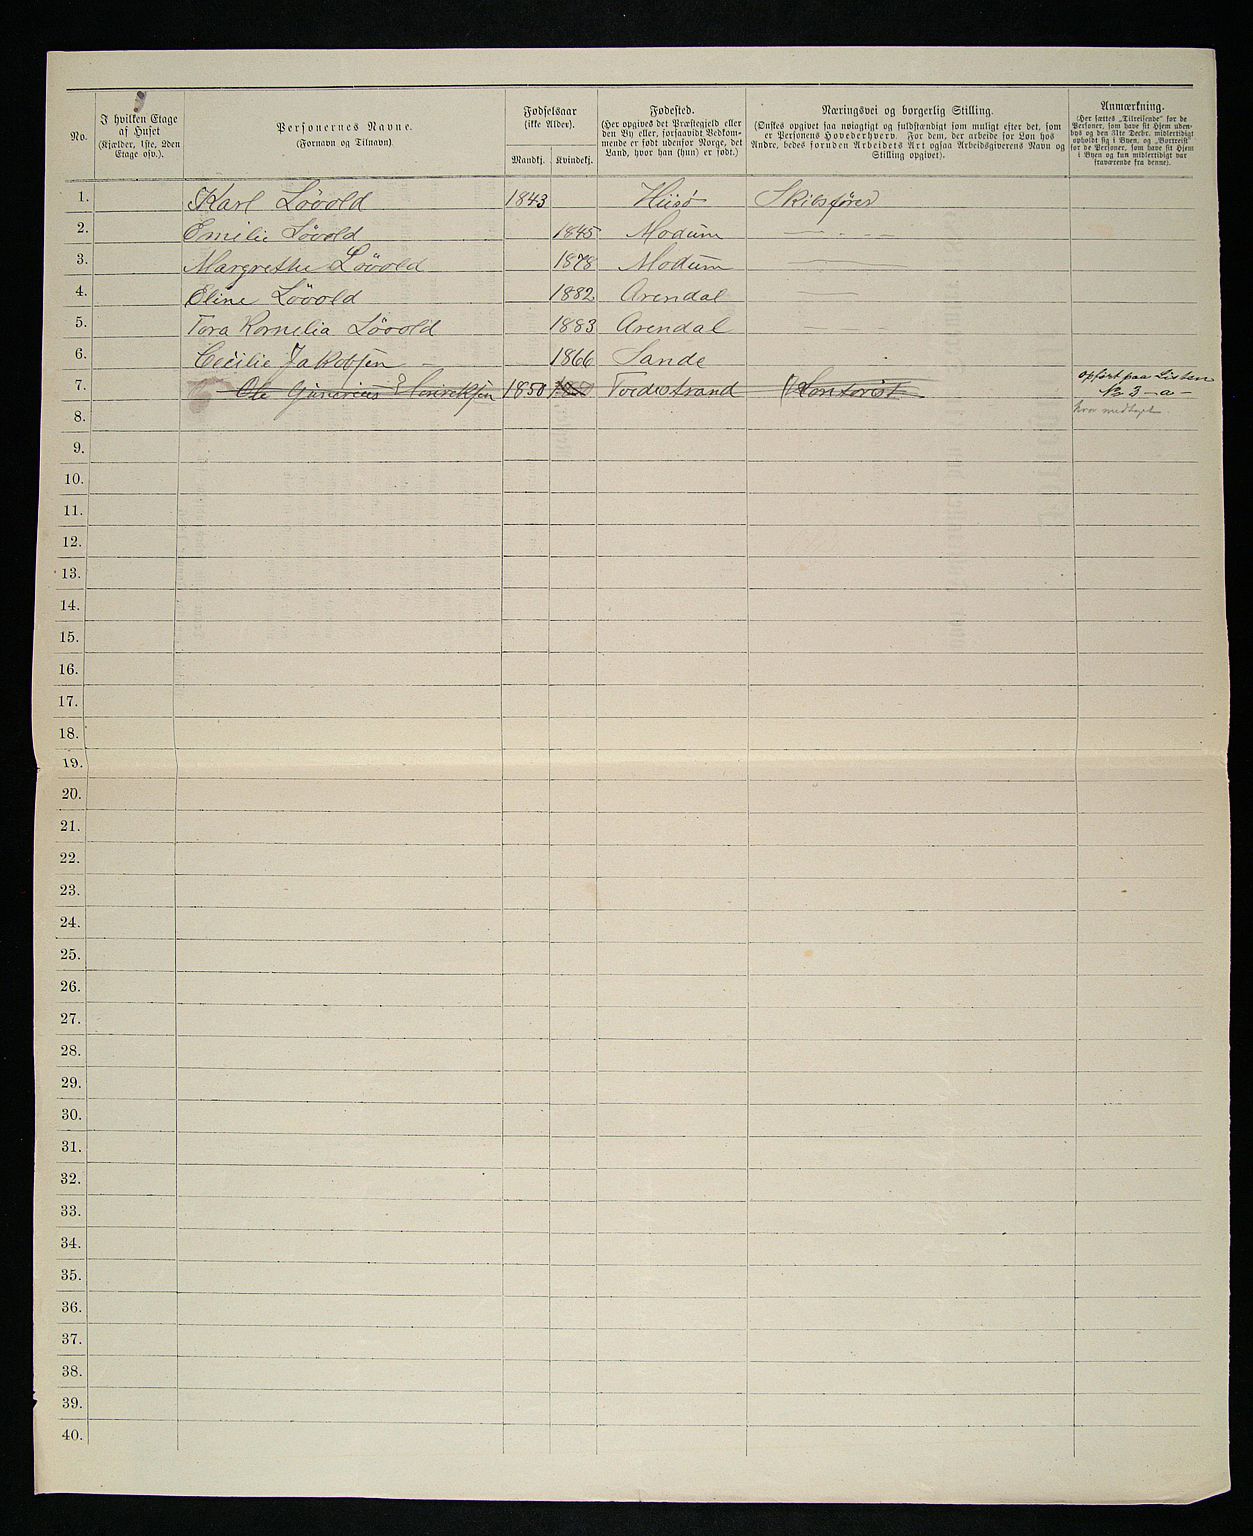 No.
I hvilken Etage af Huset (Kjælder, 1ste, 2den Etage osv.).
Personernes Navne.
(Fornavn og Tilnavn).
Fødselsaar
(ikke Alder).
Mandkj. Kvindekj.
Fødested.
(Her opgives det Præstegjeld eller den By eller, forsaavidt Vedkommende er født udenfor Norge, det Land, hvor han (hun) er født.)
Næringsvei og borgerlig Stilling.
(Ønskes opgivet saa nøiagtigt og fuldstændigt som muligt efter det, som er Personens Hovederhverv. For dem, der arbeide for Løn hos Andre, bedes foruden Arbeidets Art ogsaa Arbeidsgiverens Navn og Stilling opgivet).
Anmærkning.
(Her sættes „Tilreisende“ for de Personer, som have sit Hjem udenbys og den 31te Decbr. midlertidigt opholdt sig i Byen, og „Bortreist“ for de Personer, som have sit Hjem i Byen og kun midlertidigt var fraværende fra denne).
1. Karl Lövold 1843 Hisø Skibsfører
2. Emelie Lövold 1845 Modum
3. Margrethe Lövold 1878 Modum
4. Eline Lövold 1882 Arendal
5. Tora Kornelia Lövold 1883 Arendal
6. Cecilie Jakobsen 1866 Sande
7. Ole Gunerius Henriksen 1850 Tvedestrand Kontorist opført paa Listen No 3 - a -
hvor medtaget
8.
9.
10.
11.
12.
13.
14.
15.
16.
17.
18.
19.
20.
21.
22.
23.
24.
25.
26.
27.
28.
29.
30.
31.
32.
33.
34.
35.
36.
37.
38.
39.
40.